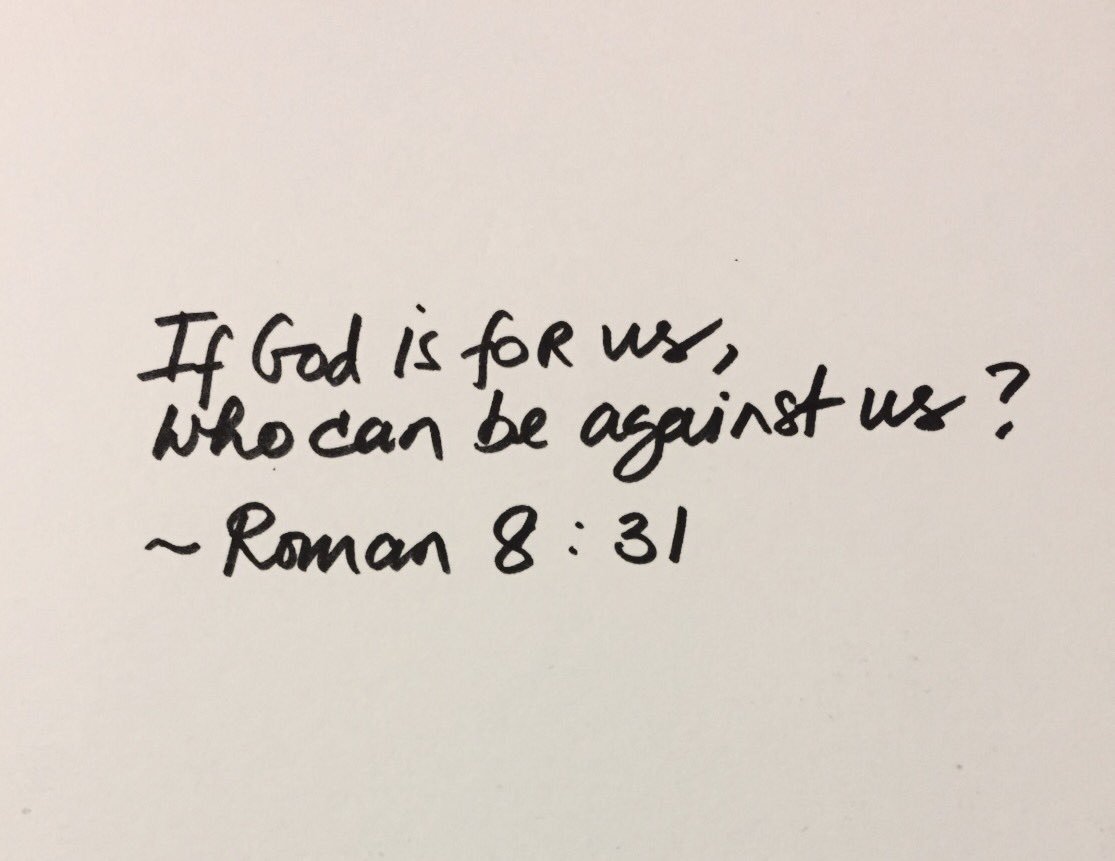 If God is for us,
who can be against us?
~ Roman 8 : 31